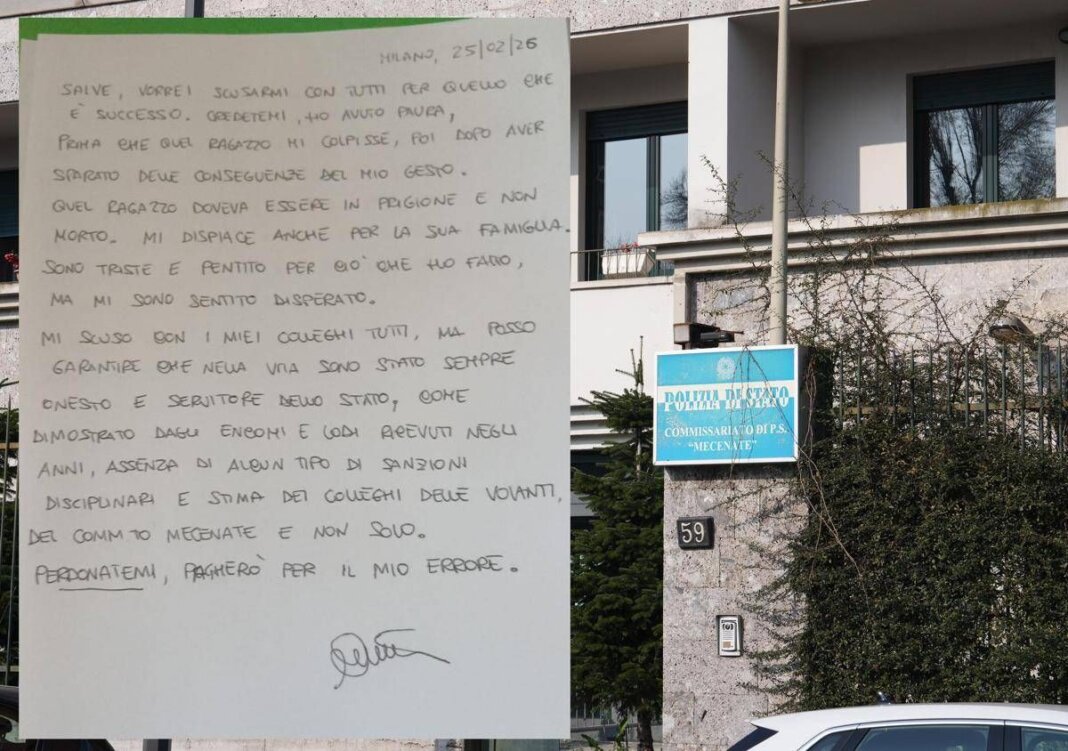 MILANO, 25/02/26
SALVE, VORREI SCUSARMI CON TUTTI PER QUELLO CHE
È SUCCESSO. CREDETEMI, HO AVUTO PAURA,
PRIMA CHE QUEL RAGAZZO MI COLPISSE, POI DOPO AVER
SPARATO DELLE CONSEGUENZE DEL MIO GESTO.
QUEL RAGAZZO DOVEVA ESSERE IN PRIGIONE E NON
MORTO. MI DISPIACE ANCHE PER LA SUA FAMIGLIA.
SONO TRISTE E PENTITO PER CIÒ CHE HO FATTO,
MA MI SONO SENTITO DISPERATO.
MI SCUSO CON I MIEI COLLEGHI TUTTI, MA POSSO
GARANTIRE CHE NELLA VITA SONO STATO SEMPRE
ONESTO E SERVITORE DELLO STATO, COME
DIMOSTRATO DAGLI ENCOMI E LODI RICEVUTI NEGLI
ANNI, ASSENZA DI ALCUN TIPO DI SANZIONI
DISCIPLINARI E STIMA DEI COLLEGHI DELLE VOLANTI,
DEL COMM.TO MECENATE E NON SOLO.
PERDONATEMI, PAGHERÒ PER IL MIO ERRORE.
POLIZIA DI STATO
COMMISSARIATO DI P.S.
"MECENATE"
59